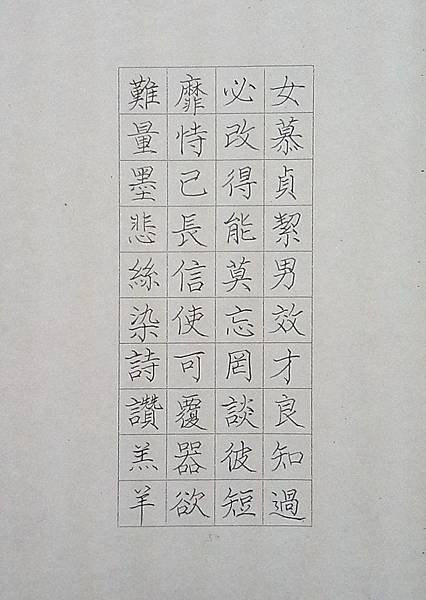 女慕貞絜男效才良知過
必改得能莫忘罔談彼短
靡恃己長信使可覆器欲
難量墨悲絲染詩讚羔羊